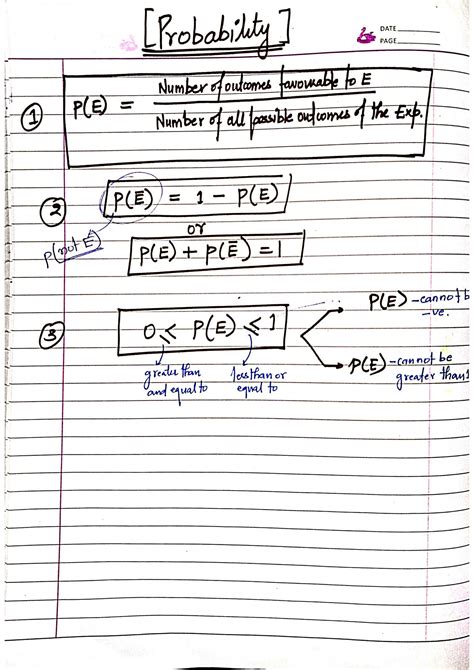 [Probability]
DATE
PAGE
① P(E) = Number of outcomes favourable to E
Number of all possible outcomes of the Exp.
② P(Ē) = 1 - P(E)
P(not E)
or
P(E) + P(Ē) = 1
③ 0 ⩽ P(E) ⩽ 1
P(E) - cannot b
-ve.
P(E) - cannot be
greater than 1
greater than
and equal to
less than or
equal to